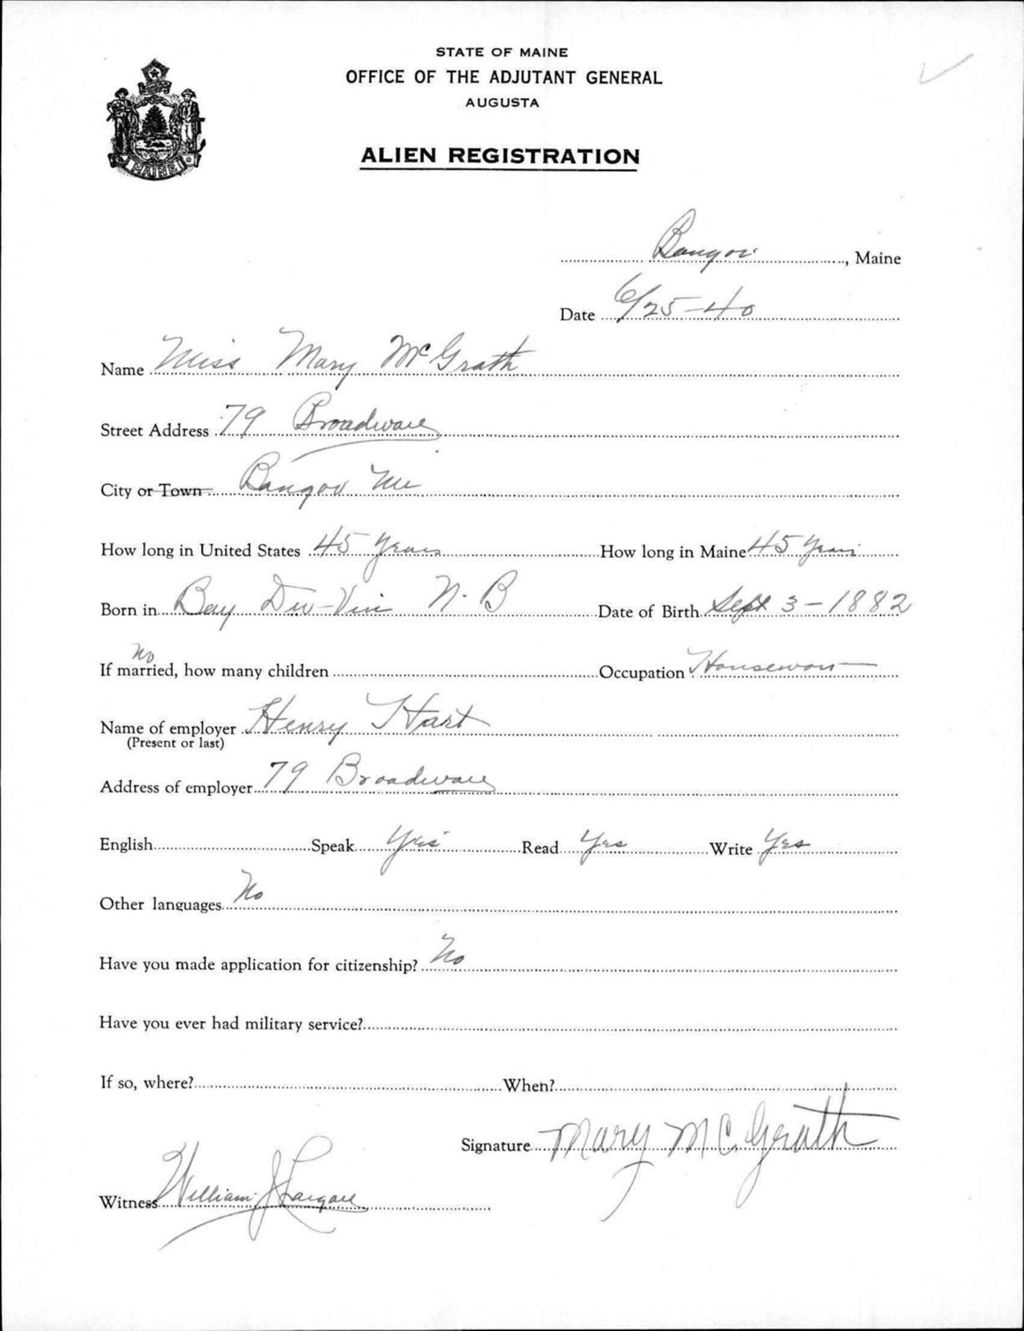 STATE OF MAINE
OFFICE OF THE ADJUTANT GENERAL
AUGUSTA
ALIEN REGISTRATION
MAINE
Bangor, Maine
Date 6/25-40
Name Miss Mary McGrath
Street Address 79 Broadway
City or Town Bangor Me
How long in United States 45 Years How long in Maine 45 Years
Born in Bay Du-Vin N.B Date of Birth Sept 3-1882
No
If married, how many children Occupation Housework
Name of employer Henry Hart
(Present or last)
Address of employer 79 Broadway
English Speak Yes Read Yes Write Yes
Other languages No
Have you made application for citizenship? No
Have you ever had military service?
If so, where? When?
Signature Mary McGrath
Witness William J